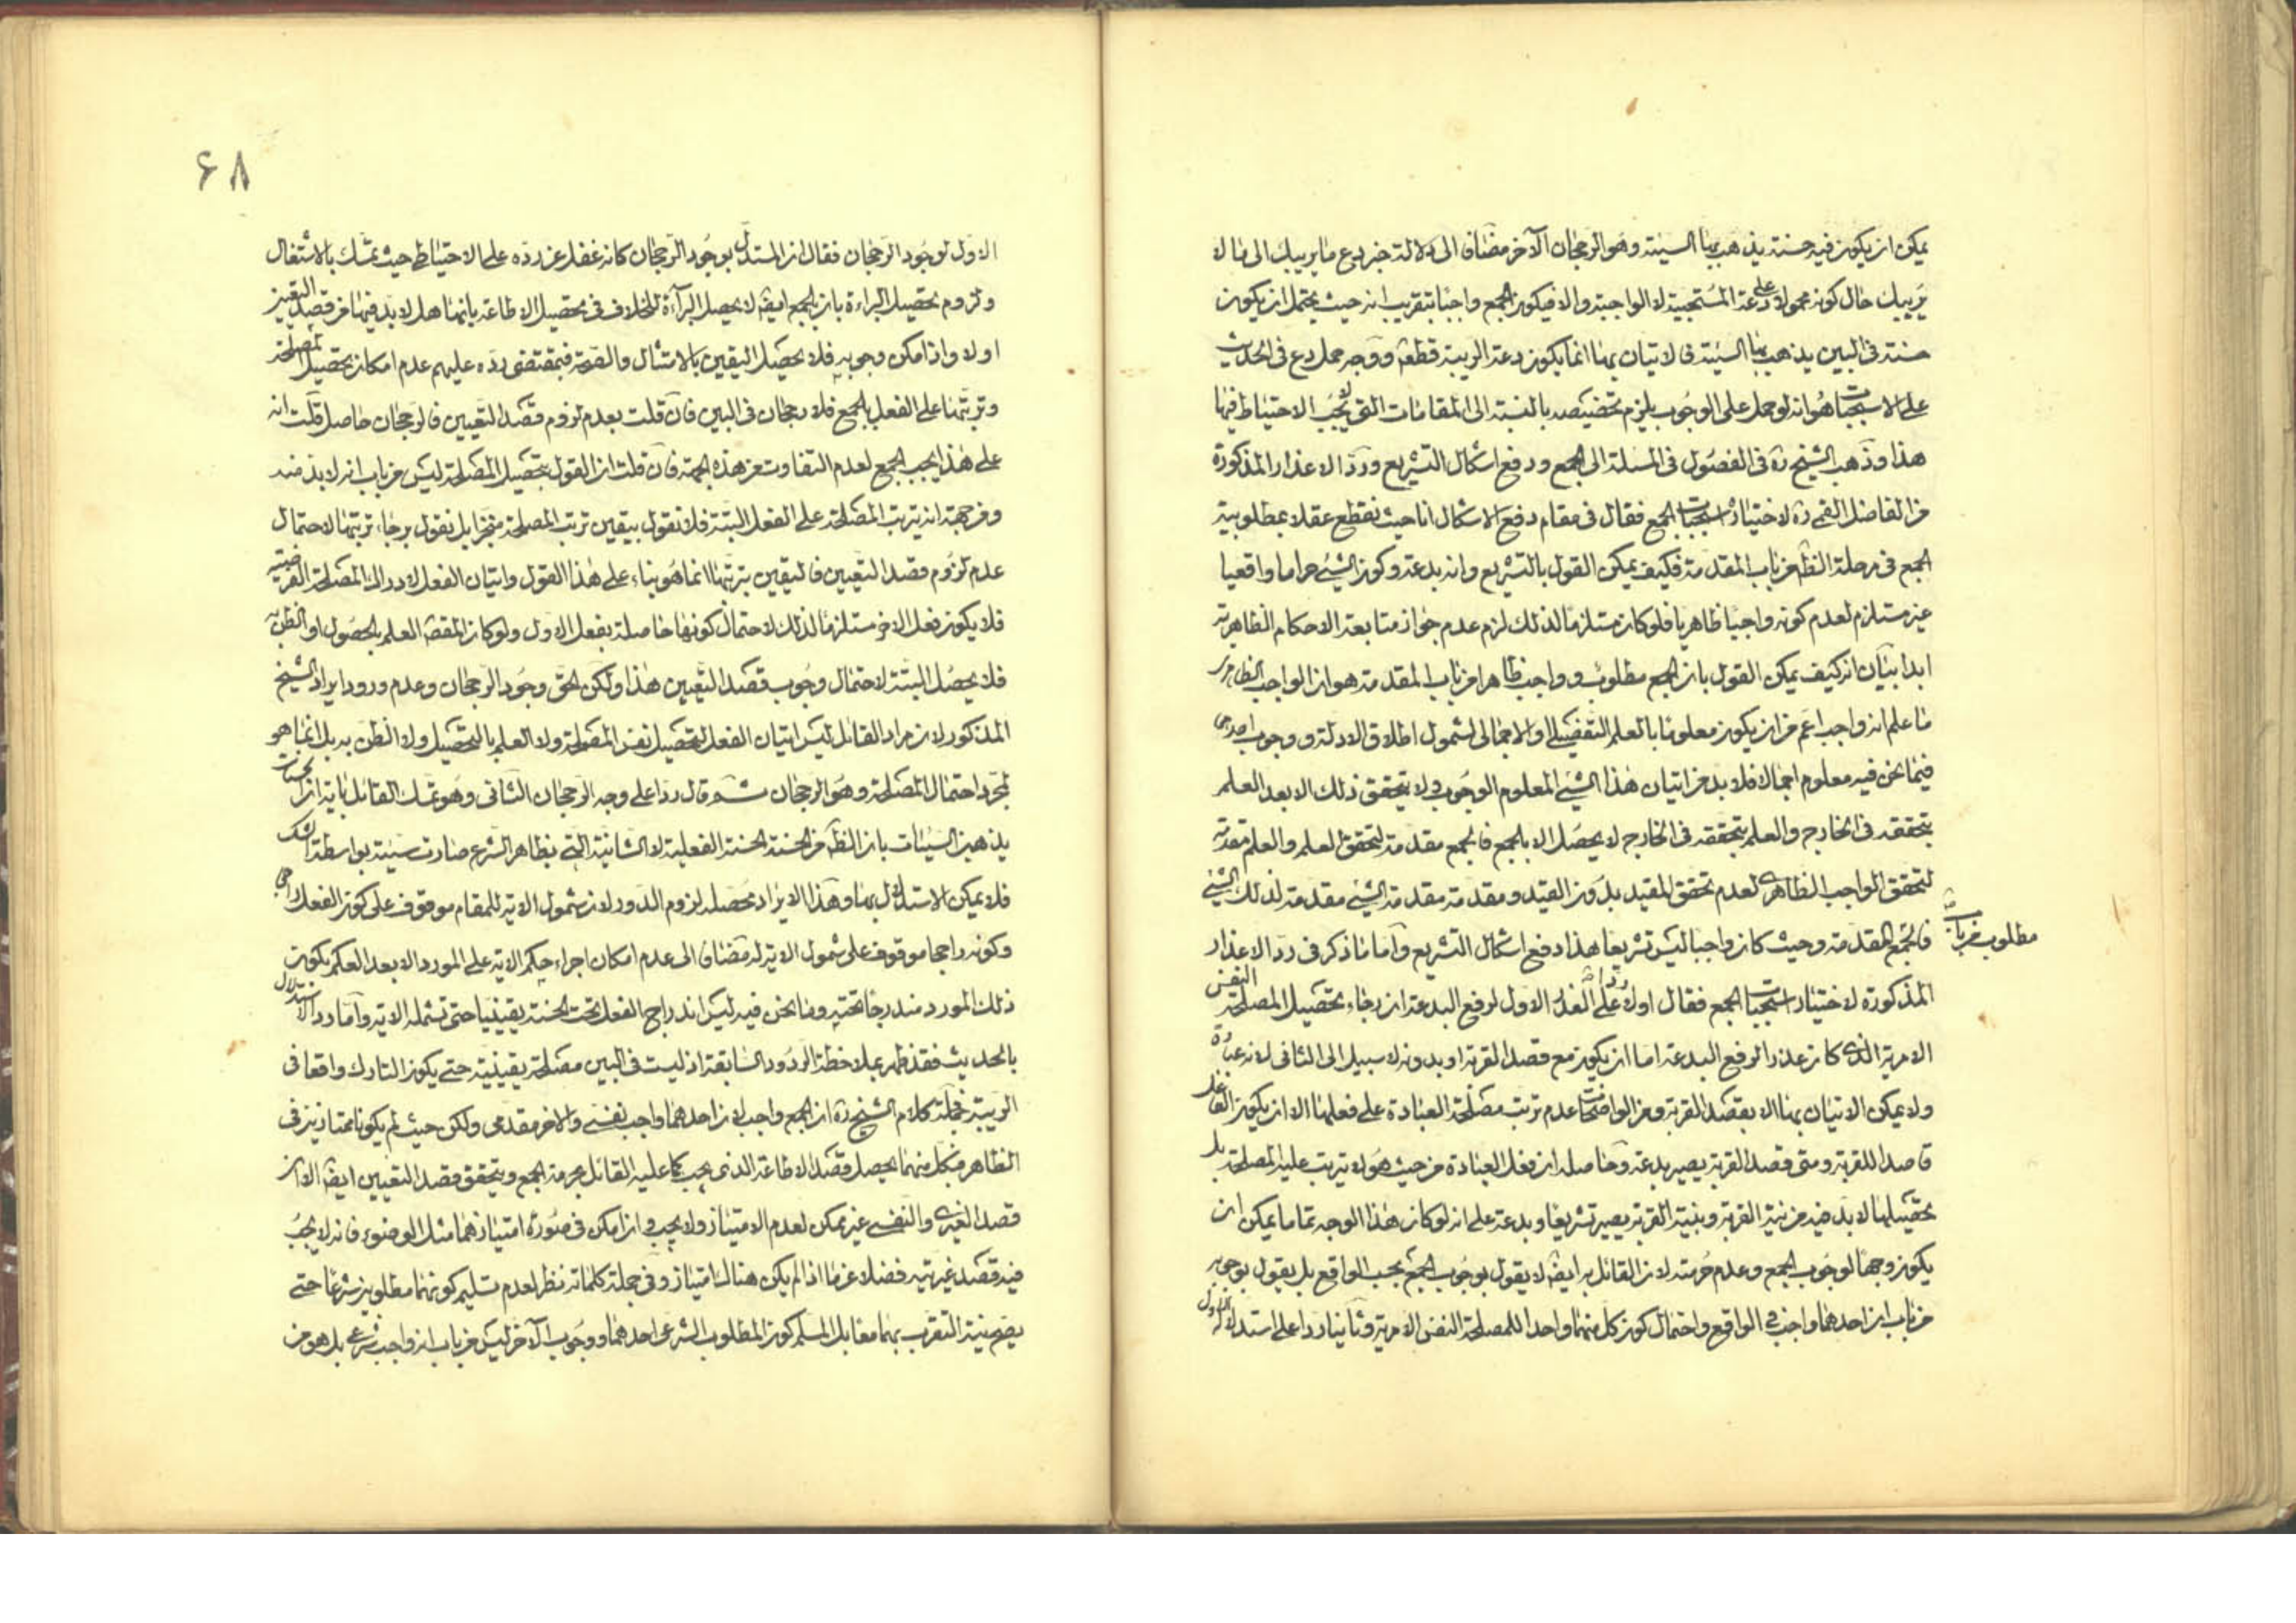 يمكن ان يكون فيه حسنة يذهب بها السيئة وهو الرجحان الآخر مضافا الى دلالة خبر دع ما يريبك الى ما لا
يريبك حال كونه محمولا على دعة المستحبية لا الواجبة والا فيكون الجمع واجبا بتقريب انه حيث يحتمل ان يكون
حسنة في البين يذهب بها السيئة فالاتيان بهما انما يكون دعة الريبة قطعا ووجه حمل دع في الحديث
على الاستحباب هو انه لو حمل على الوجوب يلزم تخصيصه بالنسبة الى المقامات التي لا يجب الاحتياط فيها
هذا وذهب الشيخ ره في الفصول في المسئلة الى الجمع ودفع اشكال التشريع ورد الاعذار المذكورة
من الفاضل القمي ره لاختيار استحباب الجمع فقال في مقام دفع الاشكال انا حيث نقطع عقلا بمطلوبية
الجمع في مرحلة الظاهر من باب المقدمة فكيف يمكن القول بالتشريع وانه بدعة وكون الشيء حراما واقعيا
غير مستلزم لعدم كونه واجبا ظاهريا فلو كان مستلزما لذلك لزم عدم جواز متابعة الاحكام الظاهرية
ابدا بيان انه كيف يمكن القول بان الجمع مطلوب وواجب ظاهرا من باب المقدمة هو ان الواجب الظاهري
ما علم انه واجب اعم من ان يكون معلوما بالعلم التفصيلي او الاجمالي لشمول اطلاق الادلة ووجوب احدهما
فيما نحن فيه معلوم اجمالا فلا بد من اتيان هذا الشيء المعلوم الوجوب ولا يتحقق ذلك الا بعد العلم
بتحققه في الخارج والعلم بتحققه في الخارج لا يحصل الا بالجمع فالجمع مقدمة لتحقق العلم والعلم مقدمة
لتحقق الواجب الظاهري لعدم تحقق المقيد بدون القيد ومقدمة مقدمة الشيء مقدمة لذلك الشيء
فالجمع مطلوب من باب المقدمة وحيث كان واجبا ليس تشريعا هذا دفع اشكال التشريع واما ما ذكر في رد الاعذار
المذكورة لاختيار استحباب الجمع فقال اولا ردا على العذر الاول لرفع البدعة ان رجاء تحصيل المصلحة النفس
الامرية الذي كان عذرا لرفع البدعة اما ان يكون مع قصد القربة او بدونه لا سبيل الى الثاني لانه عبادة
ولا يمكن الاتيان بها الا بقصد القربة ومن الواضحات عدم ترتب مصلحة العبادة على فعلها الا ان يكون الفاعل
قاصدا للقربة ومتى قصد القربة يصير بدعة وحاصله ان فعل العبادة من حيث هو لا يترتب عليه المصلحة بل
تحصيلها لا بد فيه من نية القربة وبنية القربة يصير تشريعا وبدعة على انه لو كان هذا الوجه تماما يمكن ان
يكون وجها لوجوب الجمع وعدم حرمته لان القائل به ايضا لا يقول بوجوب الجمع بحسب الواقع بل يقول بوجوبه
من باب ان احدهما واجب في الواقع واحتمال كون كل منهما واحدا للمصلحة النفس الامرية وثانيا ردا على استدلاله الاول
۶۸
الاول لوجود الرجحان فقال ان المستدل بوجود الرجحان كانه غفل عن رده على الاحتياط حيث تمسك بالاشتغال
ولزوم تحصيل البراءة بان بالجمع ايضا لا يحصل البراءة للخلاف في تحصيل الاطاعة بانها هل لا بد فيها من قصد التعيين
اولا واذا امكن وجوبه فلا يحصل اليقين بالامتثال والصحة فبمقتضى رده عليهم عدم امكان تحصيل المصلحة
وترتبها على الفعل بالجمع فلا رجحان في البين فان قلت بعدم لزوم قصد التعيين فالرجحان حاصل قلت انه
على هذا يجب الجمع لعدم التفاوت من هذه الجهة فان قلت ان القول بتحصيل المصلحة ليس من باب انه لا بد منه
ومن جهة انه يترتب المصلحة على الفعل البتة فلا نقول بيقين ترتب المصلحة منجزا بل نقول برجاء ترتبها لاحتمال
عدم لزوم قصد التعيين فاليقين بترتبها انما هو بناء على هذا القول واتيان الفعل لادراك المصلحة الفرضية
فلا يكون فعل الاخر مستلزما لذلك لاحتمال كونها حاصلة بفعل الاول ولو كان المقصود العلم بالحصول او الظن به
فلا يحصل البتة لاحتمال وجوب قصد التعيين هذا ولكن الحق وجود الرجحان وعدم ورود ايراد الشيخ
المذكور لان مراد القائل ليس اتيان الفعل لتحصيل نفس المصلحة ولا العلم بالتحصيل ولا الظن به بل انما هو
لمجرد احتمال المصلحة وهو الرجحان ثم قال ردا على وجه الرجحان الثاني وهو تمسك القائل باية ان الحسنات
يذهبن السيئات بان الظاهر من الحسنة الحسنة الفعلية لا الشانية التي بظاهر الشرع صارت سيئة بواسطة الشك
فلا يمكن الاستدلال بها وهذا الايراد محصله لزوم الدور لان شمول الاية للمقام موقوف على كون الفعل راجحا
وكونه راجحا موقوف على شمول الاية له مضافا الى عدم امكان اجراء حكم الاية على المورد الا بعد العلم بكون
ذلك المورد مندرجا تحته وما نحن فيه ليس اندراج الفعل تحت الحسنة يقينيا حتى تشمله الاية واما رد الاستدلال
بالحديث فقد ظهر بملاحظة الردود السابقة اذ ليست في البين مصلحة يقينية حتى يكون التارك واقعا في
الريبة فجملة كلام الشيخ ره ان الجمع واجب لان احدهما واجب نفسي والاخر مقدمي ولكن حيث لم يكونا ممتازين في
الظاهر فبكل منهما يحصل قصد الاطاعة الذي يجب كما عليه القائل بحرمة الجمع ويتحقق قصد التعيين ايضا الا ان
قصد الغيري والنفسي غير ممكن لعدم الامتياز ولا يجب وان امكن في صورة امتيازهما مثل الوضوء فانه لا يجب
فيه قصد غيريته فضلا عما اذا لم يكن هناك امتياز وفي جملة كلماته نظر لعدم تسليم كونهما مطلوبين شرعا حتى
يصح نية التقرب بهما معا بل المسلم كون المطلوب الشرعي احدهما ووجوب الآخر ليس من باب انه واجب شرعي بل هو من